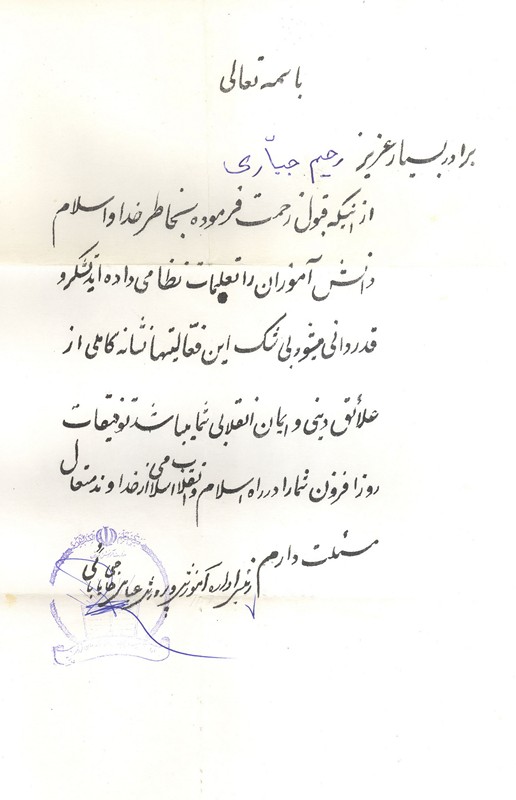 باسمه تعالی
برادر بسیار عزیز رحیم جبّاری
از اینکه قبول زحمت فرموده بخاطر خدا و اسلام
دانش آموزان را تعلیمات نظامی داده اید تشکر و
قدردانی میشود بی شک این فعّالیتها نشانه کاملی از
علائق دینی و ایمان انقلابی شما میباشد توفیقات
روز افزون شما را در راه اسلام و انقلاب اسلامی از خداوند متعال
مسئلت دارم
رئیس اداره آموزش و پرورش عباس